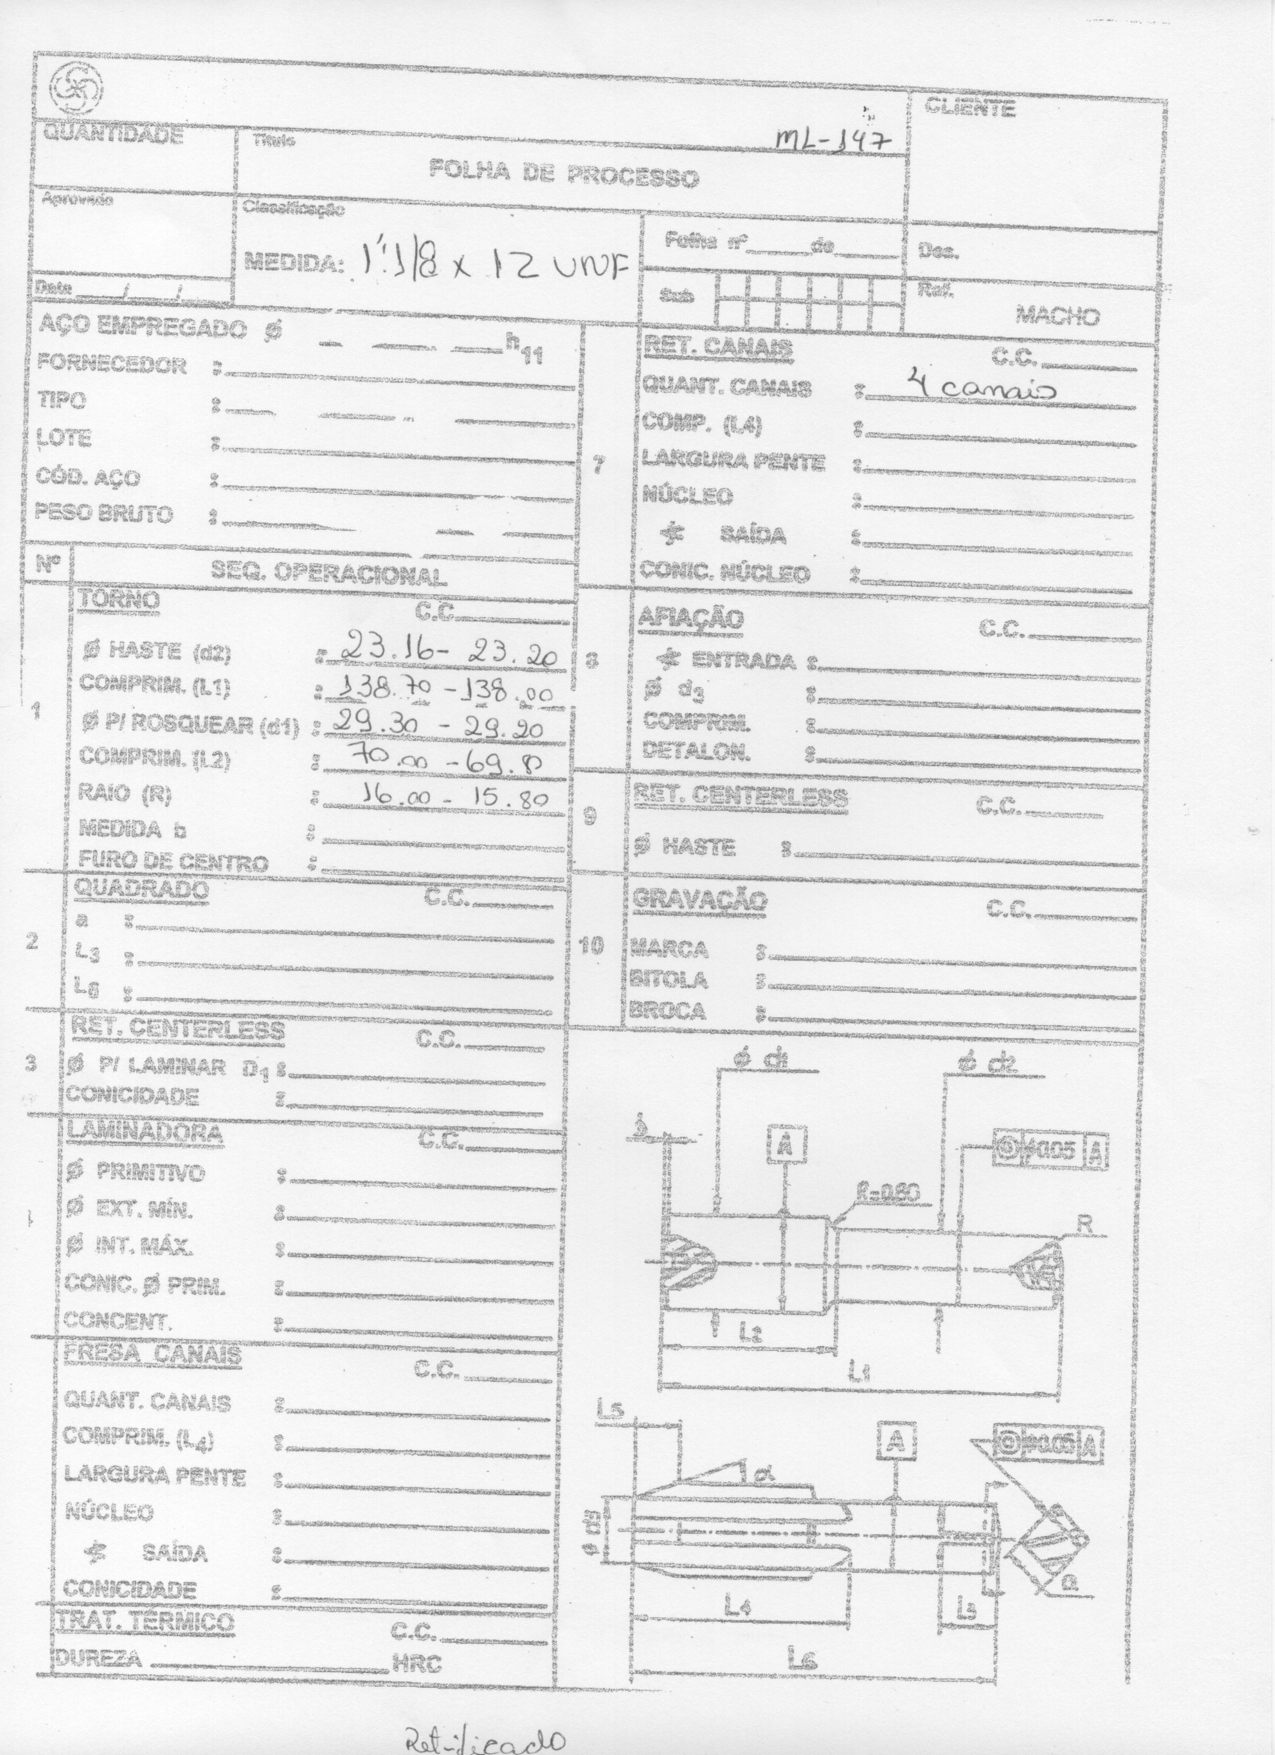 CLIENTE
QUANTIDADE
Título
ML-147
FOLHA DE PROCESSO
Aprovado
Classificação
MEDIDA: 1".1/8 x 12 UNF
Folha nº ____ de ____
Des.
Data ___/___/___
Sub
Ref.
MACHO
AÇO EMPREGADO Ø h11
FORNECEDOR :
TIPO :
LOTE :
CÓD. AÇO :
PESO BRUTO :
Nº SEQ. OPERACIONAL
1
TORNO C.C.
Ø HASTE (d2) : 23.16 - 23.20
COMPRIM. (L1) : 138.70 - 138.00
Ø P/ ROSQUEAR (d1) : 29.30 - 29.20
COMPRIM. (L2) : 70.00 - 69.8
RAIO (R) : 16.00 - 15.80
MEDIDA b :
FURO DE CENTRO :
2
QUADRADO C.C.
a :
L3 :
L6 :
3
RET. CENTERLESS C.C.
Ø P/ LAMINAR D1 :
CONICIDADE :
LAMINADORA C.C.
Ø PRIMITIVO :
Ø EXT. MÍN. :
Ø INT. MÁX. :
CONIC. Ø PRIM. :
CONCENT. :
FRESA CANAIS C.C.
QUANT. CANAIS :
COMPRIM. (L4) :
LARGURA PENTE :
NÚCLEO :
SAÍDA :
CONICIDADE :
TRAT. TÉRMICO C.C.
DUREZA ____ HRC
7
RET. CANAIS C.C.
QUANT. CANAIS : 4 canais
COMP. (L4) :
LARGURA PENTE :
NÚCLEO :
SAÍDA :
CONIC. NÚCLEO :
8
AFIAÇÃO C.C.
ENTRADA :
Ø d3 :
COMPRIM. :
DETALON. :
9
RET. CENTERLESS C.C.
Ø HASTE :
10
GRAVAÇÃO C.C.
MARCA :
BITOLA :
BROCA :
Ø d1
Ø d2
b
A
0.05 A
R=0.80
R
L2
L1
L5
A
0.05 A
α
Ø d3
a
L4
L3
L6
Retificado